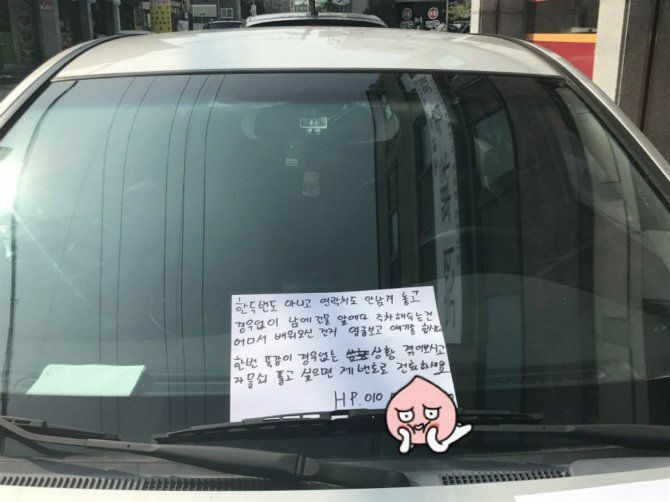 한두번도 아니고 연락처도 안남겨 놓고
경우없이 남에 건물 앞에다 주차해두는건
어디서 배워오신 건지 얼굴보고 얘기좀 합시다
한번 똑같이 경우없는 상황 겪어보시고
자물쇠 풀고 싶으면 제 번호로 전화하세요
HP. 010